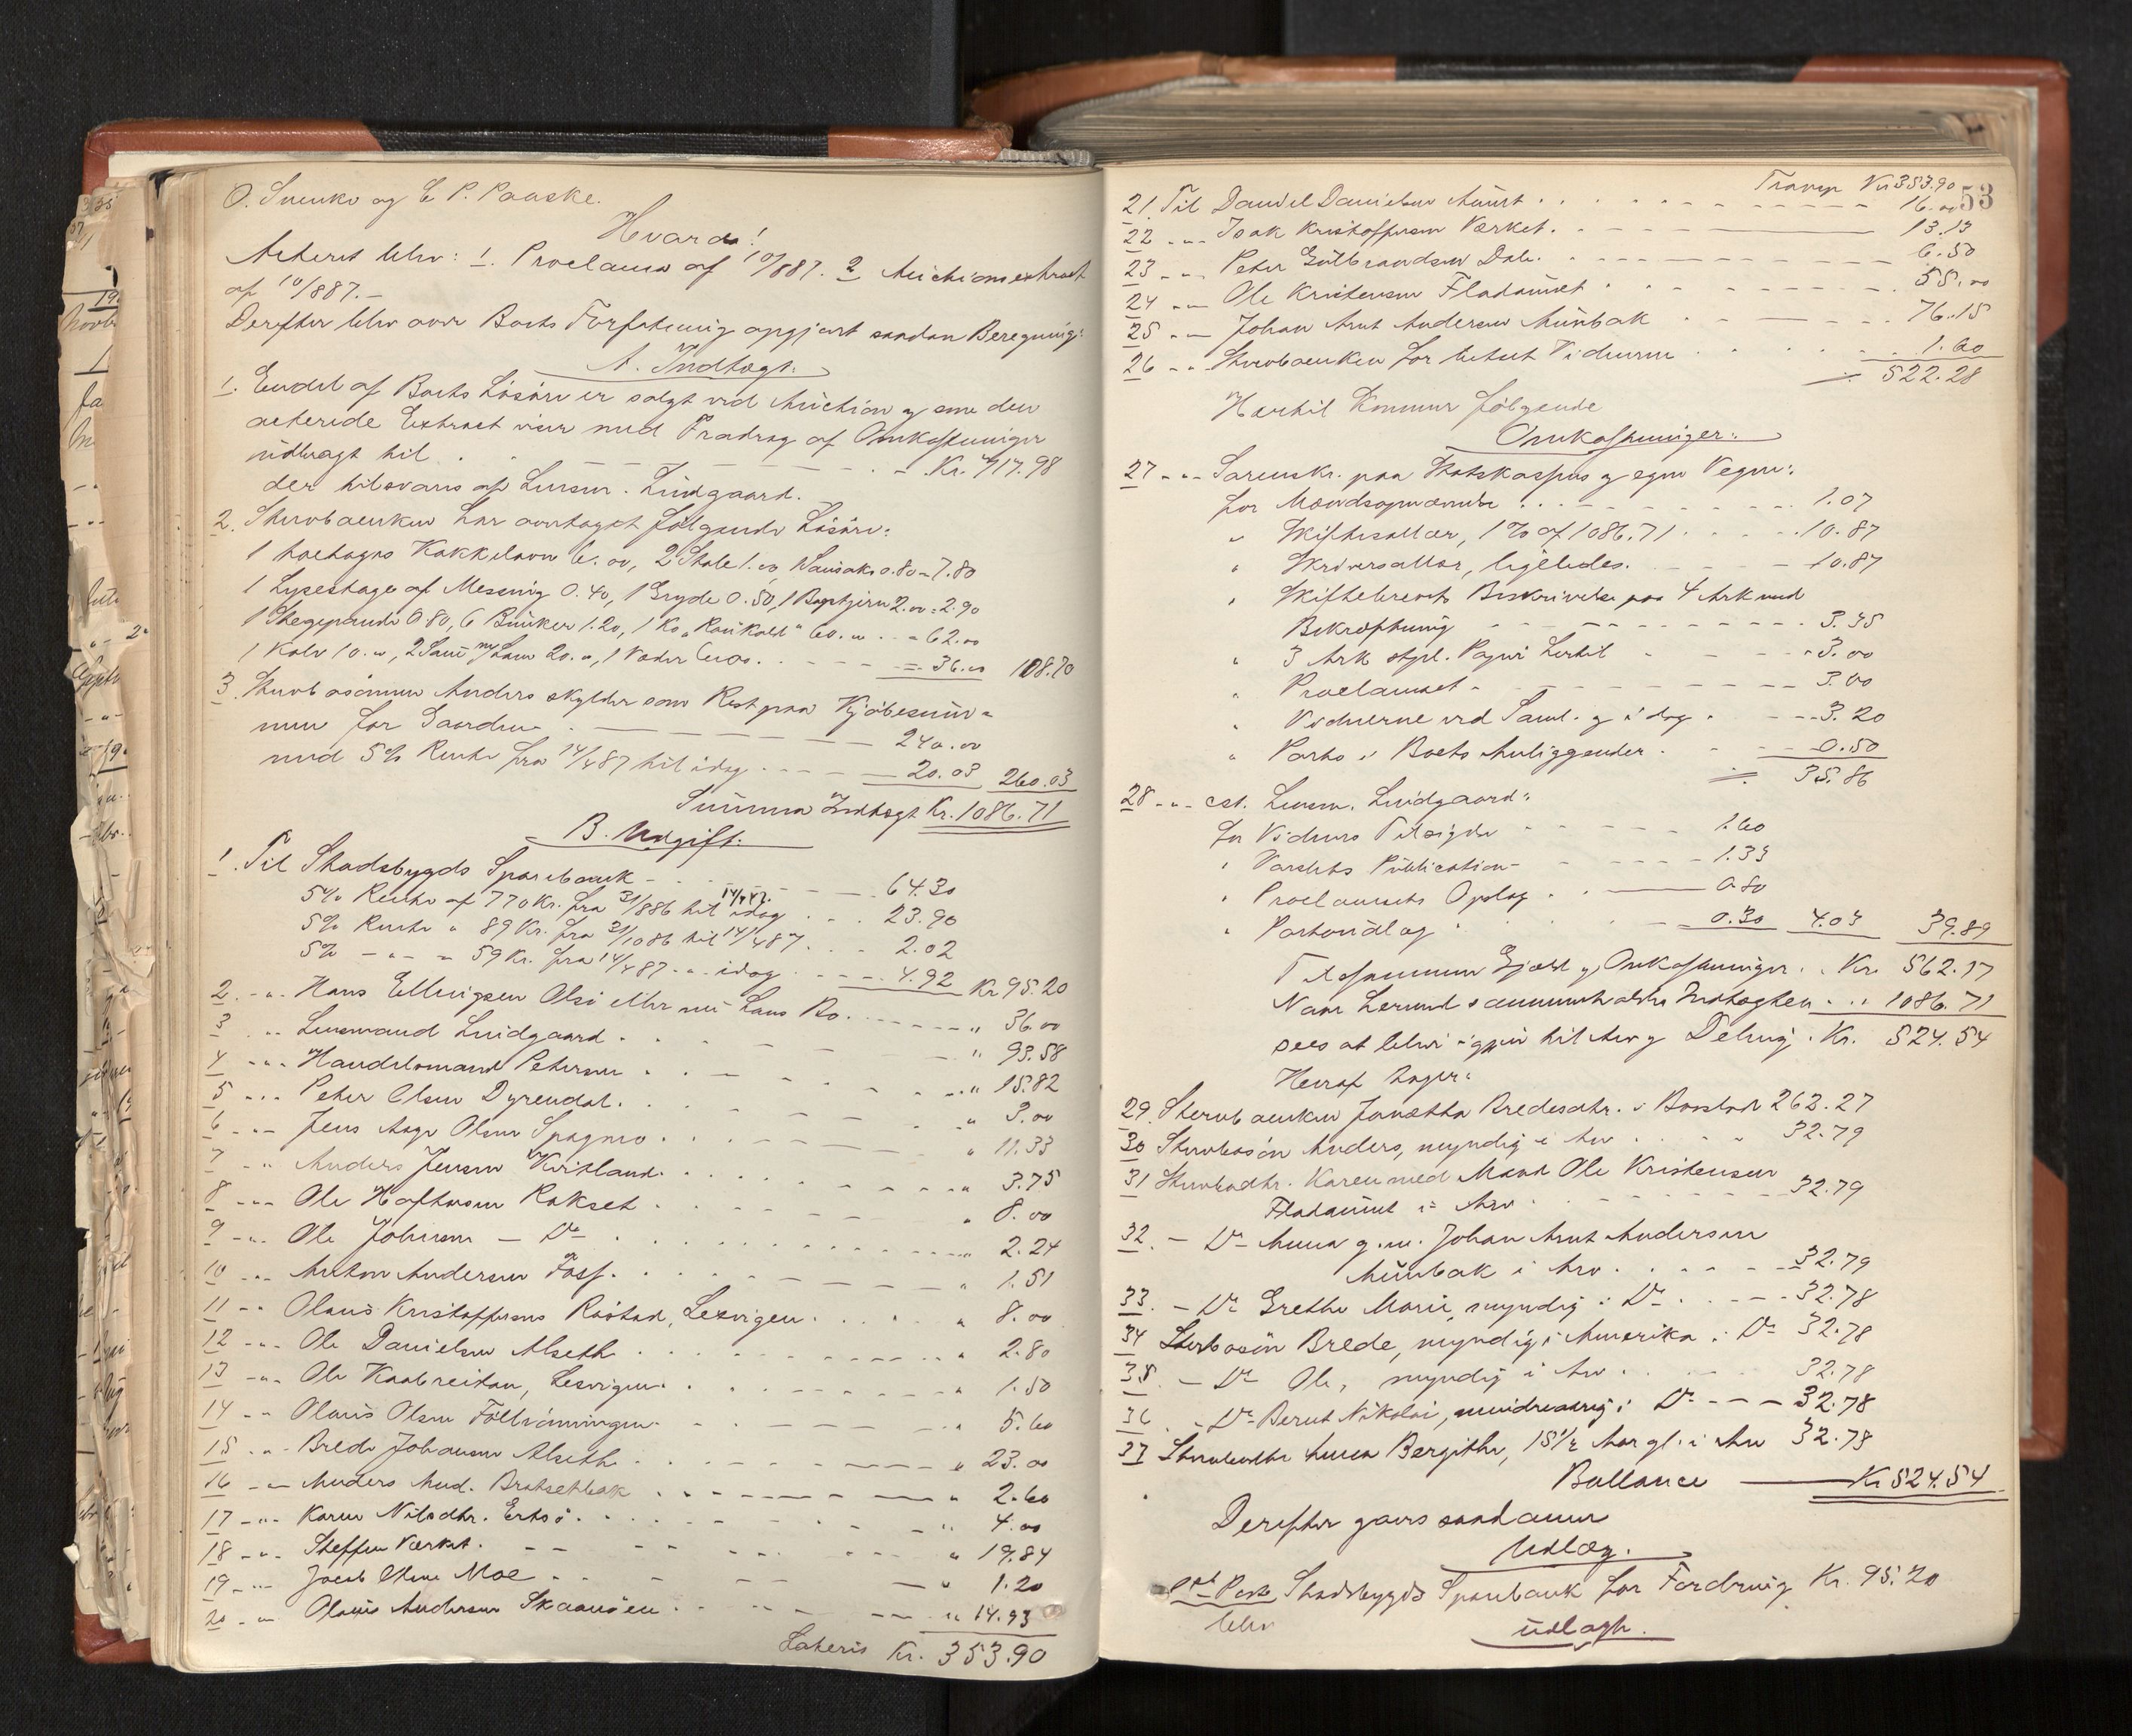 O. Suenke og E P. Paaske.
Hvarda!
Akteret blev: 1. Proclama af 10/887. 2 Auctionsextract
af 10/887.-
Derefter blev over Boets Forfatning opgjort saadan Beregning:
A. Indtægt.
1. Endel af Boets Løsøre er solgt ved Auction og som den
acterede Extract viser med Fradrag af Omkostninger
udbragt til . . - - - - - Kr. 717.98
der tilsvares af Lensm. Lindgaard.
2. Stervboenken har overtaget følgende Løsøre:
1 toetages Kakkelovn 6.00, 2 Stole 1.00, 0.80 = 7.80
1 Lysestage af Messing 0.40, 1 Gryde 0.50, 1 Bagstjern 2.00 = 2.90
1 Stegepande 0.80, 6 Bunker 1.20, 1 Ko "Raukold" 60.00 = 62.00
1 Kalv 10.00, 2 Sau m/Lam 20.00, 1 Væder 6.00. - - - = 36.00 108.70
3. Stervbosønnen Anders skylder som Rest paa Kjøbesum-
men for Gaarden - - - 240.00
med 5% Rente fra 14/487 til idag - - - 20.03 260.03
Summa Indtægt Kr. 1086.71
B. Udgift.
1. Til Stadsbygds Sparebank - - - 64.30
5% Rente af 770 Kr. fra 31/886 til 14/487. idag . . . 23.90
5% Rente " 89 Kr. fra 21/1086 til 14/487 . . . 2.02
5% - " - " 59 Kr. fra 14/487 - " - idag - - - 4.92 Kr 95.20
2. - " - Hans Ellingsen Olsø eller nu hans Bo. - - - " 36.00
3 " Lensmand Lindgaard . . " 93.58
4 - " - Handelsmand Petersen . . " 15.82
5 - " - Peter Olsen Dyrendal. . . " 3.00
6 - " - Jens Aage Olsen Spagmo . . . " 11.33
7 - " Anders Jensen Kvitland. . . " 3.75
8 - " - Ole Haftorsen Rokset . . " 8.00
9 - " - Ole Johnsen - Do . . . " 2.24
10 - " - Anton Andersen Fosf. . . " 1.51
11 - " Olaus Kristoffersens Røstad, Lexvigen . . . " 8.00
12 - " - Ole Danielsen Alseth . . . " 2.80
13 - " - Ole Kaabreitan, Lexvigen. . . " 1.50
14 - " Olaus Olsen . . " 5.60
15 - " - Brede Johansen Alseth . . . " 23.00
16 - " - Anders And. Brotsethbak . . . " 2.60
17 - " - Karen Nilsdtr. Ertsø. . . " 4.00
18 - " - Steffen Værket. - - " 19.84
19 - " - Jacob Olsen Moe . . - " 1.20
20 - " Olaus Andersen Skaansøen . . . " 14.93
Lateris Kr. 353.90
53
Transp Kr 353.90
21. Til Daniel Danielsen Aunet . . . 16.00
22 - " - Isak Kristoffersen Værket. - - 13.13
23 - " - Peter Gulbrandsen Dale. - - 6.50
24 - " - Ole Kristensen Fladaunet . . 55.00
25 - " - Johan Arnt Andersen Aunbak . . 76.15
26 - " - Stervboenken for betalt Vidnerne . . . 1.60
522.28
Hertil kommer følgende
Omkostninger:
27 - " - Sorenskr. paa Statskassens og egne Vegne:
for . . . 1.07
" Skifteskatter, 1% af 1086.71 . . . 10.87
" Skriversalær, ligeledes. - - 10.87
" Skiftebrevets Beskrivelse paa 4 Ark med
Bekræftning - - - 3.35
" 3 Ark stpl. Papir hertil - - - 3.00
" Proclamaet - - - 3.00
" Vidnerne ved Saml. og i dag . - - 3.20
" Porto i Boets Anliggender . - - 0.50
35.86
28 - " - cst. Lensm. Lindgaard:
for Vidners Tilsigelse - - - 1.60
" Varslets Publication - - - 1.33
" Proclamaets Opslag . . - 0.80
" Portoudlæg . . - 0.30 4.03 39.89
Tilsammen Gjæld og Omkostninger. . Kr. 562.17
Naar hermed sammenholdes Indtægten . . . 1086.71
sees at blive igjen til Arv og Deling . Kr. 524.54
Heraf tager:
29. Stervboenken Jonetta Bredesdtr. i Boeslod 262.27
30 Stervbosøn Anders, myndig i Arv . . . " 32.79
31 Stervbodtr. Karen med Mand Ole Kristensen
Fladaunet i Arv - - - 32.79
32. - Do Anna g. m. Johan Arnt Andersen
Aunbak i Arv . . . - 32.79
33. - Do Grethe Marie, myndig i Do . . - - 32.78
34 Stervbosøn Brede, myndig i Amerika i Do 32.78
35 . - Do Ole, myndig i Arv . . . 32.78
36 . - Do Bernt Nikolai, mindreaarig i Do - - - 32.78
37 Stervbodtr Anna Bergithe, 15 1/2 Aar gl. i Arv 32.78
Ballance - Kr 524.54
Derefter gaves saadanne
Udlæg.
1ste Post Stadsbygds Sparebank for Fordring Kr. 95.20
blev
udlagt.